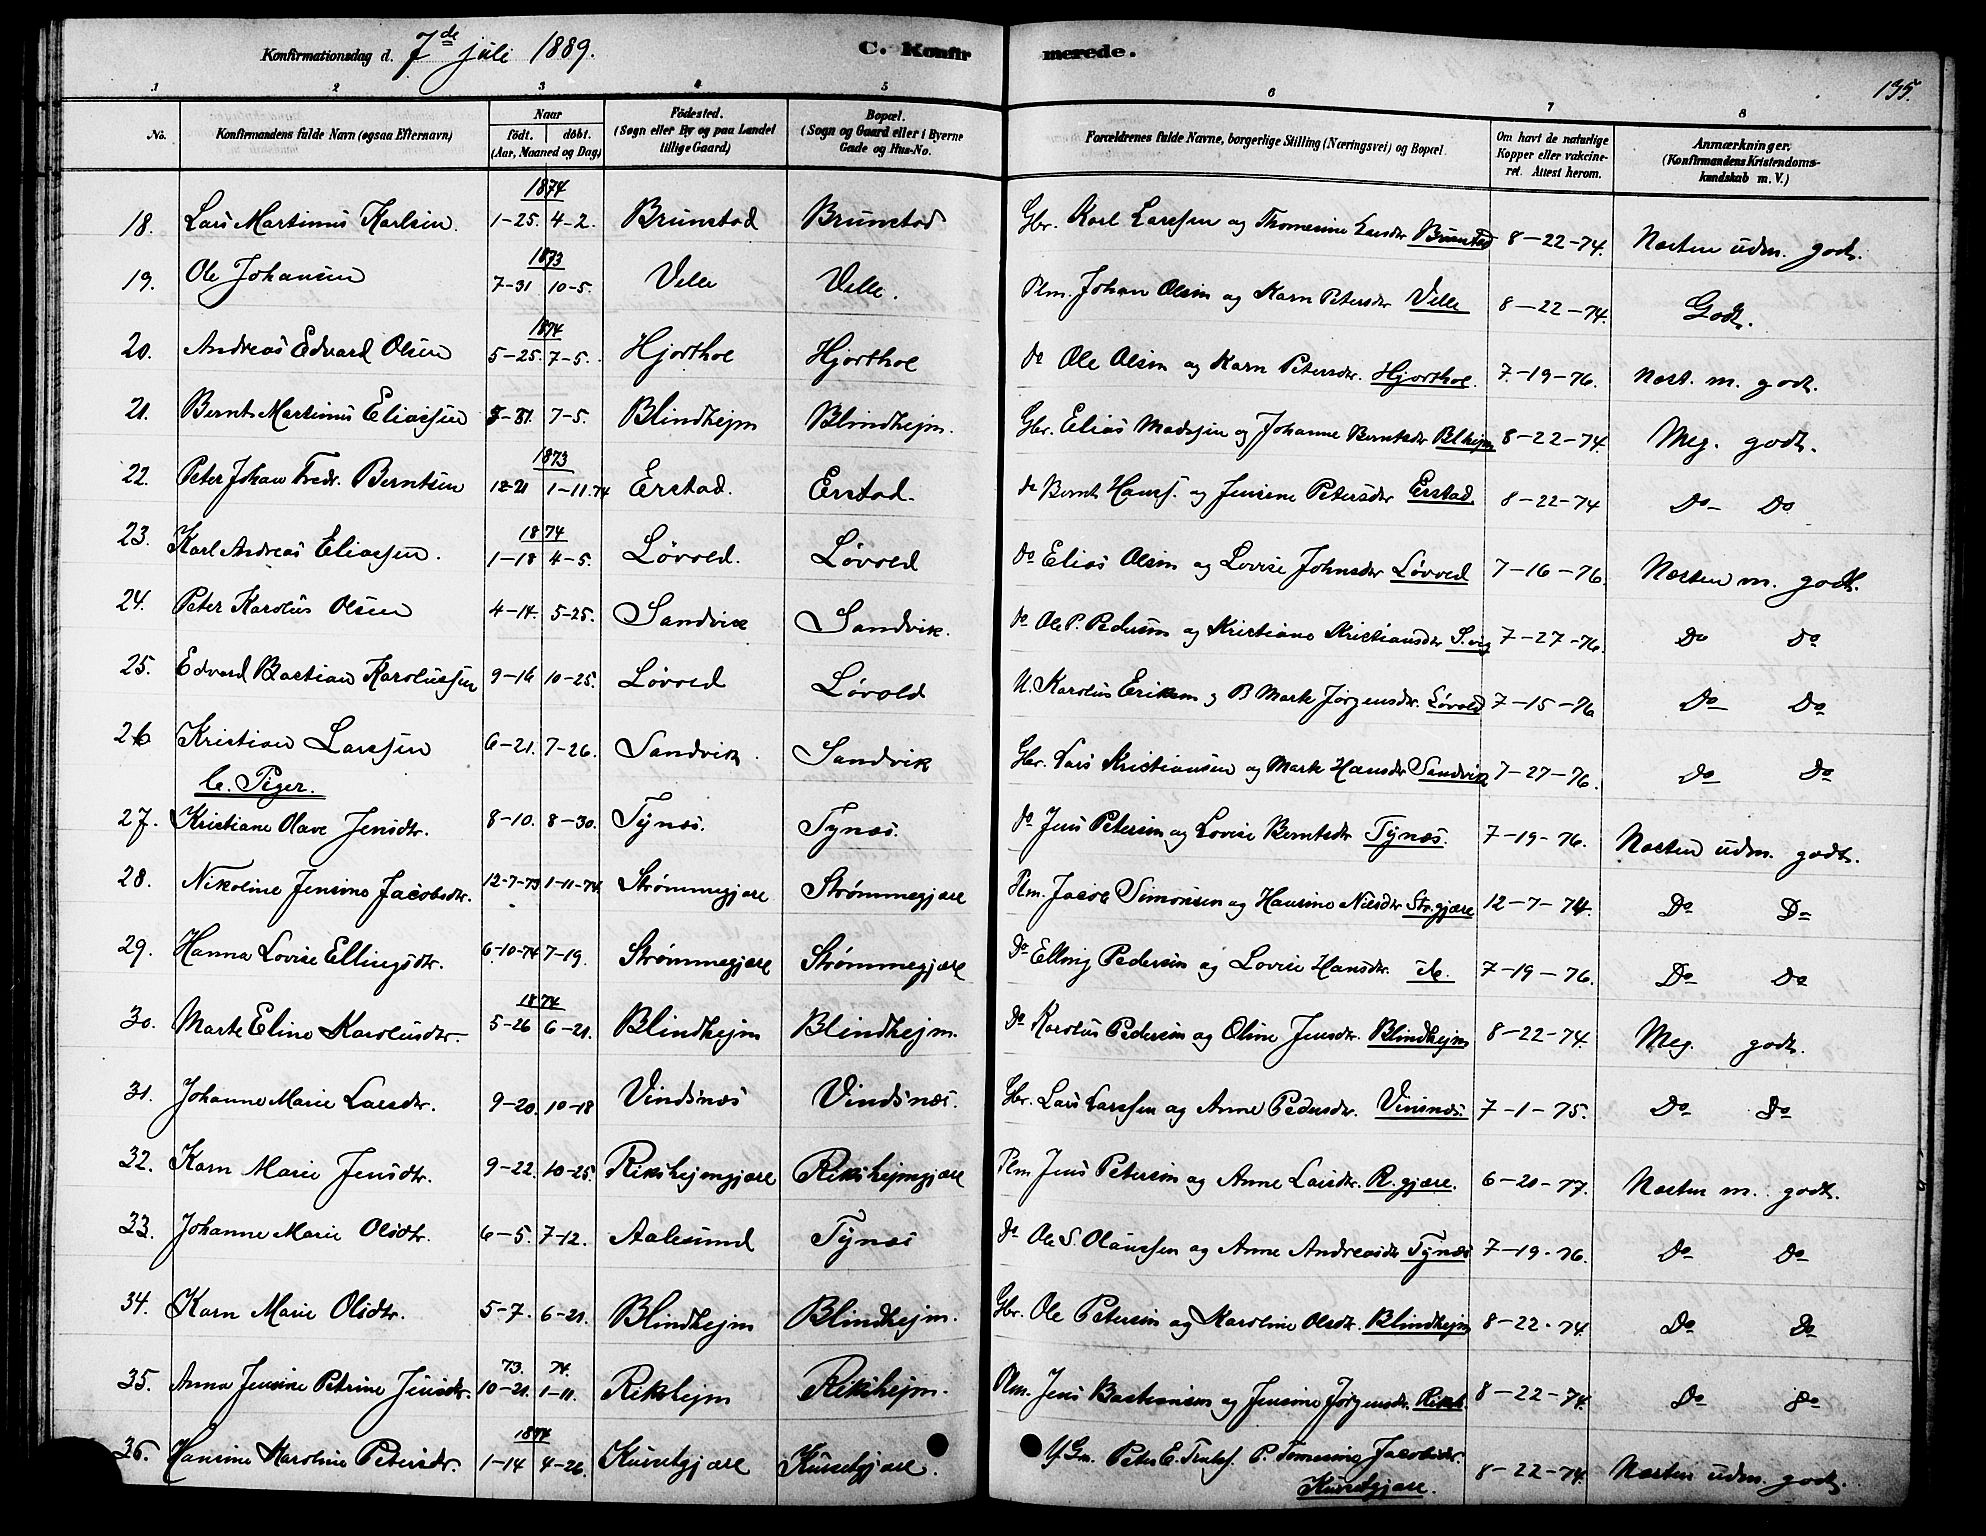 Konfirmationsdag d. 7de juli 1889. C. Konfirmerede. 135.
1 2 3 4 5 6 7 8
No. Konfirmandens fulde Navn (ogsaa Efternavn) Naar födt. döbt. (Aar, Maaned og Dag) Födested. (Sogn eller By og paa Landet tillige Gaard) Bopæl. (Sogn og Gaard eller i Byerne Gade og Hus-No. Forældrenes fulde Navne, borgerlige Stilling (Næringsvei) og Bopæl. Om havt de naturlige Kopper eller vakcineret. Attest herom. Anmærkninger. (Konfirmandens Kristendomskundskab m. V.)
1874
18. Lars Martinus Karlsen. 1-25. 4-2. Brunstad Brunstad Gbr. Karl Larssen og Thomesine Larsdtr Brunstad 8-22-74. Næsten udm. godt.
1873
19. Ole Johansen 7-31 10-5. Velle Velle. Plm. Johan Olsen og Karn Petersdtr Velle 8-22-74. Godt.
1874
20. Andreas Edvard Olsen 5-25. 7-5. Hjorthol Hjorthol do Ole Olsen og Karn Petersdtr. Hjorthol. 7-19-76. Næst. m. godt.
21. Bernt Martinus Eliassen 7-5. Blindhejm Blindhejm. Gbr. Elias Madssen og Johanne Berntsdtr Blhejm 8-22-74. Meg. godt.
1873
22. Peter Johan Fredr. Berntsen 12-21 1-11.74 Erstad. Erstad. do Bernt Hanss. og Jensine Petersdtr Erstad. 8-22-74 Do Do
1874
23. Karl Andreas Eliassen. 1-18 4-5. Løvold. Løvold do Elias Olsen og Lovise Johnsdtr Løvold 7-16-76. Næsten m. godt.
24. Peter Karolus Olsen 4-14. 5-25. Sandvik Sandvik. do Ole P. Pedersen og Kristiane Kristiansdtr S.vig 7-27-76. Do Do
25. Edvard Bastian Karolussen 9-16 10-25. Løvold Løvold Karolus Eriksen og B Marte Jørgensdtr. Løvold 7-15-76 Do Do
26 Kristian Larssen 6-21. 7-26. Sandvik. Sandvik Gbr. Lars Kristiansen og Marte Hansdtr Sandvik 7-27-76. Do Do
b. Piger.
27. Kristiane Olave Jensdtr. 8-10. 8-30. Tynæs. Tynæs. do Jens Petersen og Lovise Berntsdtr Tynæs. 7-19-76. Næsten udm. godt.
28. Nikoline Jensine Jacobsdtr. 12-7-73 1-11-74. Strømmegjære Strømmegjære Plm. Jacob Simonsen og Hansine Nilsdtr Str.gjære 12-7-74. Do Do
29. Hanna Lovise Ellingsdtr. 6-10-74 7-19. Strømmegjære Strømmegjære Do Elling Pedersen og Lovise Hansdtr. 7-19-76. Do Do
1874
30. Marte Eline Karolusdtr. 5-26 6-21. Blindhejm Blindhejm. Do Karolus Pedersen og Oline Jensdtr. Blindhejm 8-22-74. Meg. godt.
31. Johanne Marie Larsdtr. 9-20. 10-18 Vindsnæs Vindsnæs. Gbr. Lars Larssen og Anne Pedersdtr. Vinsnæs. 7-1-75. Do Do
32. Karn Marie Jensdtr. 9-22. 10-25. Rikshejmgjære Rikshejmgjære Plm. Jens Petersen og Anne Larsdtr. R.gjære. 6-20-77. Næsten m. godt.
33. Johanne Marie Olsdtr. 6-5. 7-12. Aalesund Tynæs do Ole S. Olaussen og Anne Andreasdtr Tynæs 7-19-76. Do Do
34. Karn Marie Olsdtr. 5-7. 6-21. Blindhejm Blindhejm. Gbr. Ole Petersen og Karoline Olsdtr. Blindhejm 8-22-74. Do Do
73. 74.
35. Anna Jensine Petrine Jensdtr. 10-21. 1-11. Rikshejm Rikshejm. Plm. Jens Bastiansen og Jensine Jörgensdtr. Riksh. 8-22-74. Do Do
1874
36. Hansine Karoline Petersdtr. 1-14 4-26. Kursetgjære Kursetgjære. Peter E. P. Tomesine Jacobsdtr. Kursetgjære. 8-22-74. Næsten udm. godt.